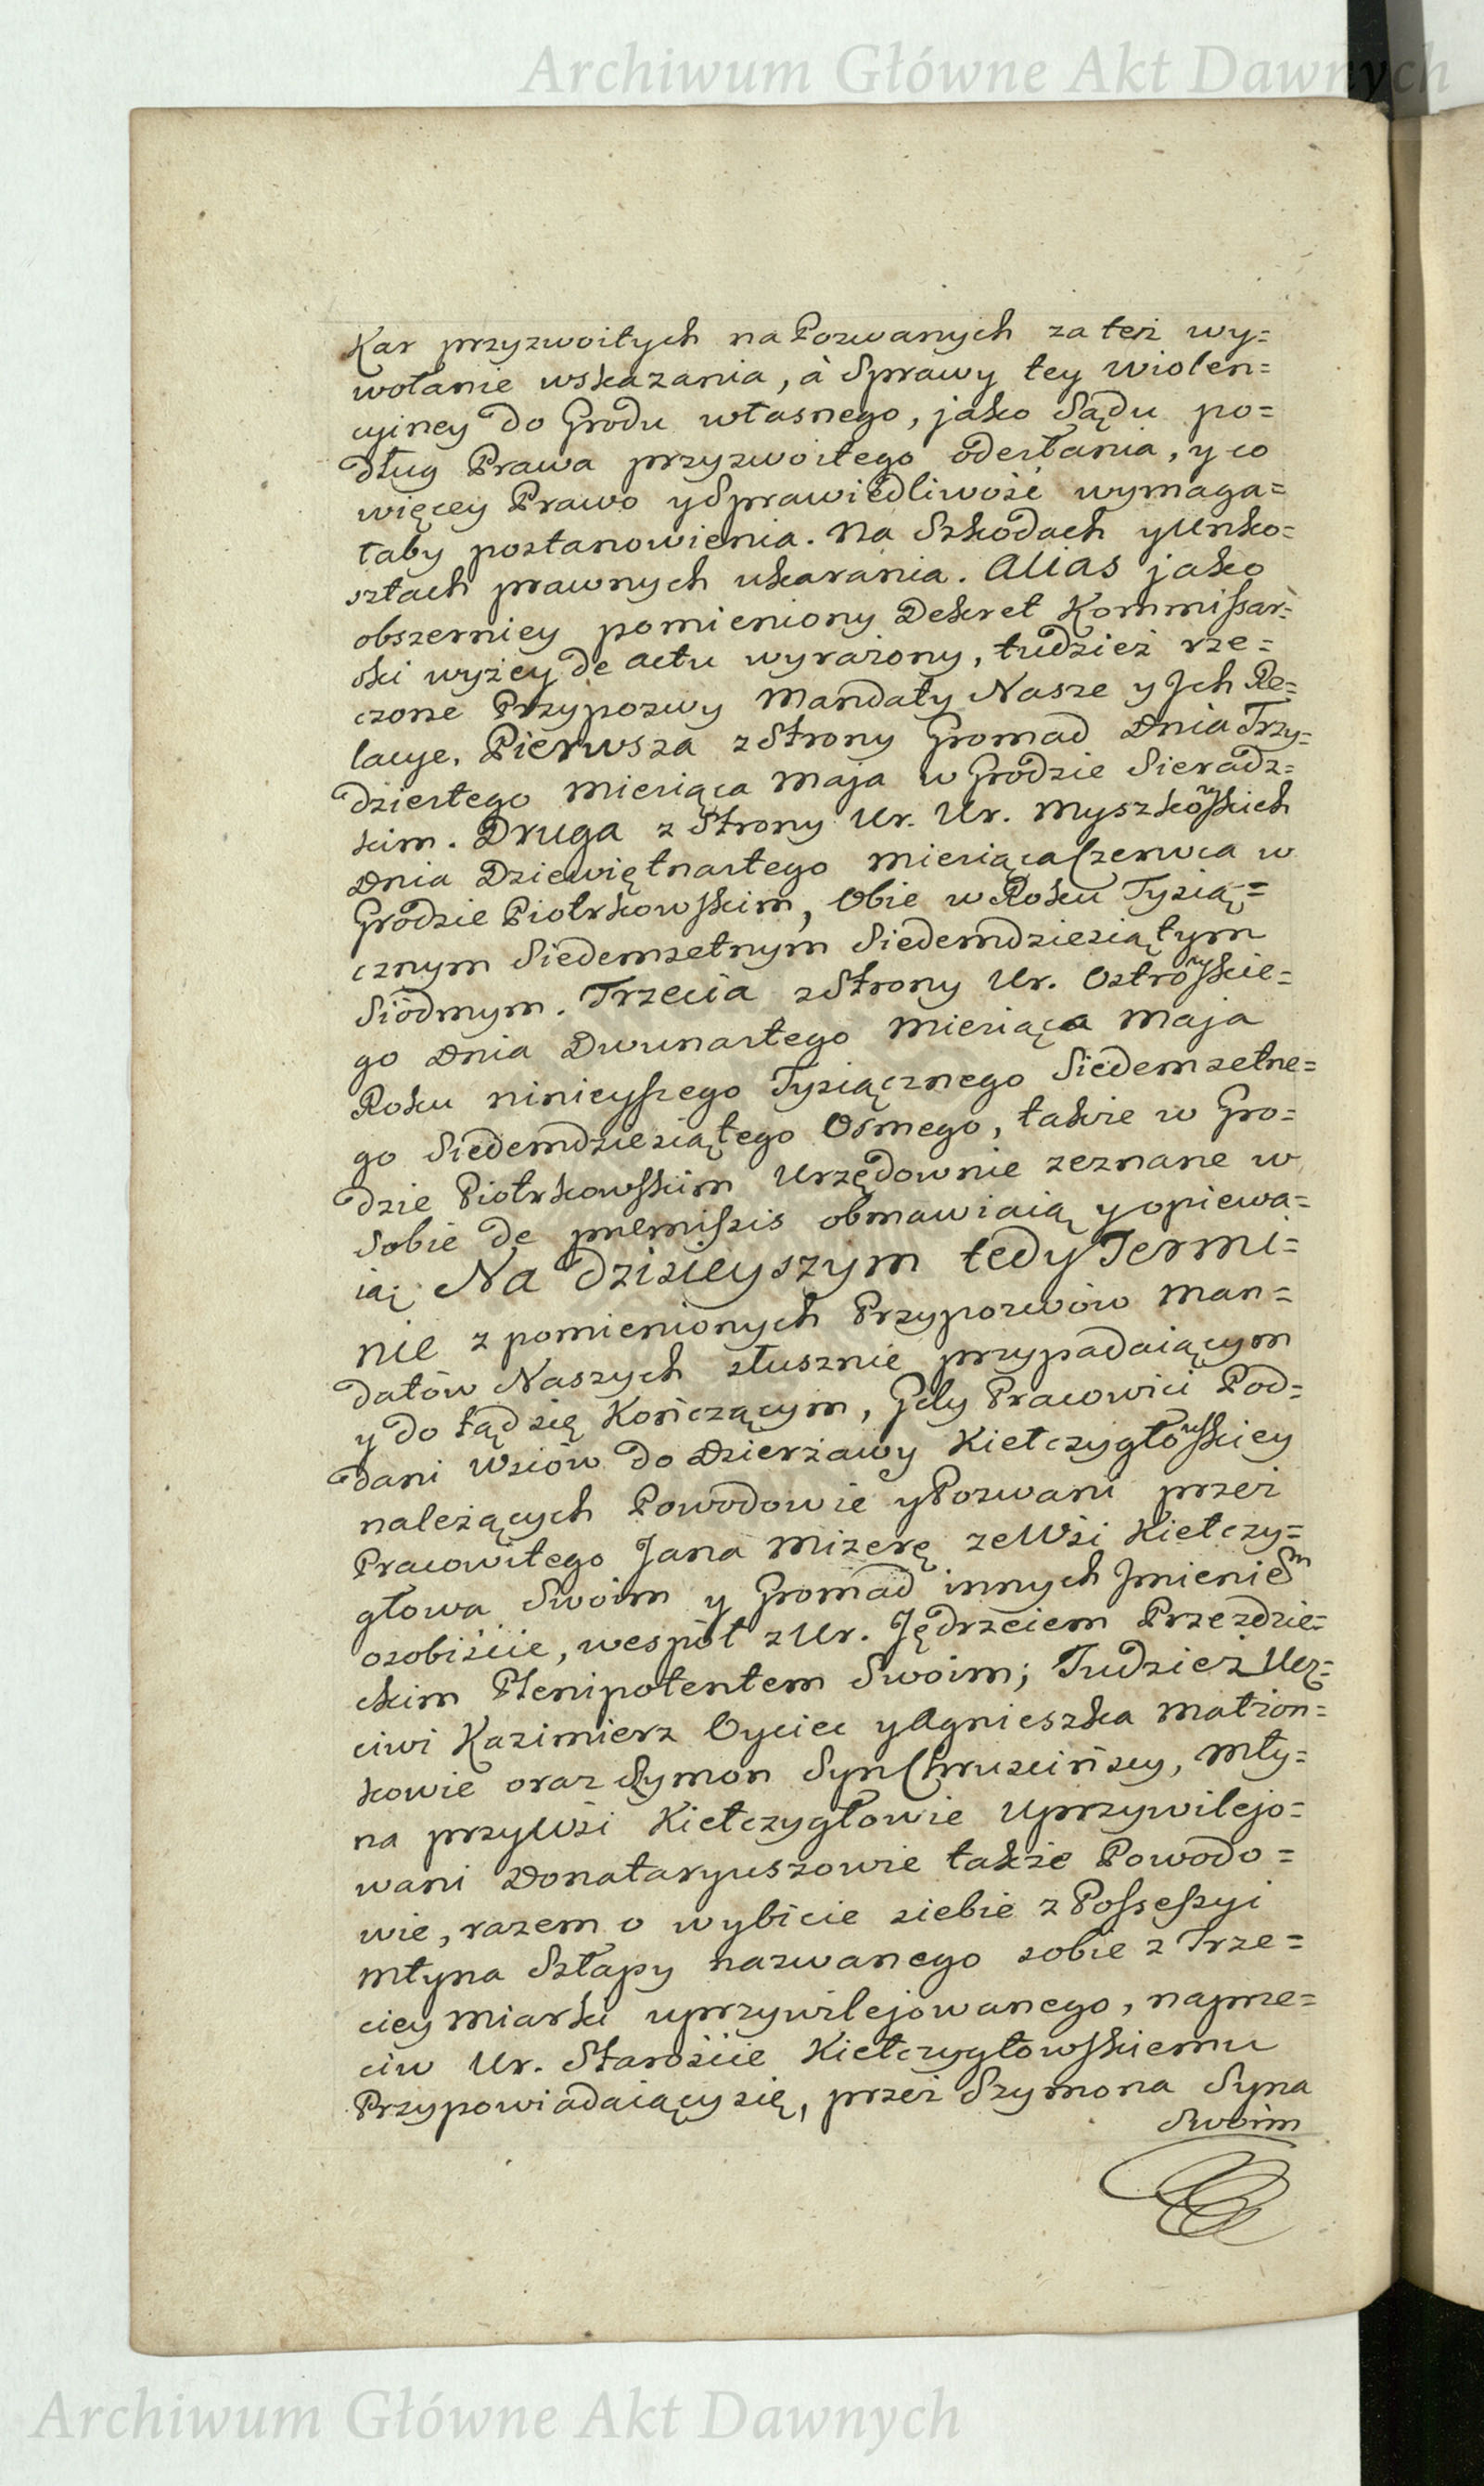 Archiwum Główne Akt Dawnych
Kar przyzwoitych na Pozwanych za też wy=
wołanie wskazania, à Sprawy tey wiolen=
cyiney do Grodu własnego, jako Sądu po=
dług Prawa przyzwoitego odesłania, y co
więcey Prawo y Sprawiedliwość wymaga=
łaby postanowienia. Na Szkodach y Unko=
sztach prawnych ukarania. Alias jako
obszerniey pomieniony Dekret Kommissar=
ski wyżey de actu wyrażony, tudzież rze=
czone Przypozwy Mandaty Nasze y Jch Re=
lacye, Pierwsza z Strony Gromad Dnia Trzy=
dziestego Miesiąca Maja w Grodzie Sieradz=
kim. Druga z Strony Ur. Ur. Myszkowskich
Dnia Dziewiętnastego Miesiąca Czerwca w
Grodzie Piotrkowskim, Obie w Roku Tysią=
cznym Siedemsetnym Siedemdziesiątym
Siódmym. Trzecia z Strony Ur. Ostrowskie=
go Dnia Dwunastego Miesiąca Maja
Roku ninieyszego Tysiącznego Siedemsetne=
go Siedemdziesiątego Osmego, także w Gro=
dzie Piotrkowskim Urzędownie zeznane w
Sobie de premissis obmawiaią y opiewa=
ią; Na Dzisieyszym tedy Termi=
nie z pomienionych Przypozwów Man=
datów Naszych słusznie przypadaiącym
y do tąd się Kończącym, Gdy Pracowici Pod=
dani Wsiów do Dzierżawy Kiełczygłowskiey
należących Powodowie y Pozwani przez
Pracowitego Jana Mizerę ze Wsi Kiełczy=
głowa Swoim y Gromad innych Jmieniem
osobiście, wespół z Ur. Jędrzeiem Przezdzie=
ckim Plenipotentem Swoim; Tudzież Ucz=
ciwi Kazimierz Oyciec y Agnieszka Małżon=
kowie oraz Szymon Syn Chruscińscy, Mły=
na przy Wsi Kiełczygłowie Uprzywilejo=
wani Donataryuszowie także Powodo=
wie, razem o wybicie siebie z Possessyi
Młyna Sztapy nazwanego sobie z Trze=
ciey Miarki uprzywilejowanego, naprze=
ciw Ur. Starościie Kiełczygłowskiemu
Przypowiadaiący się, przez Szymona Syna
Swoim
Archiwum Główne Akt Dawnych